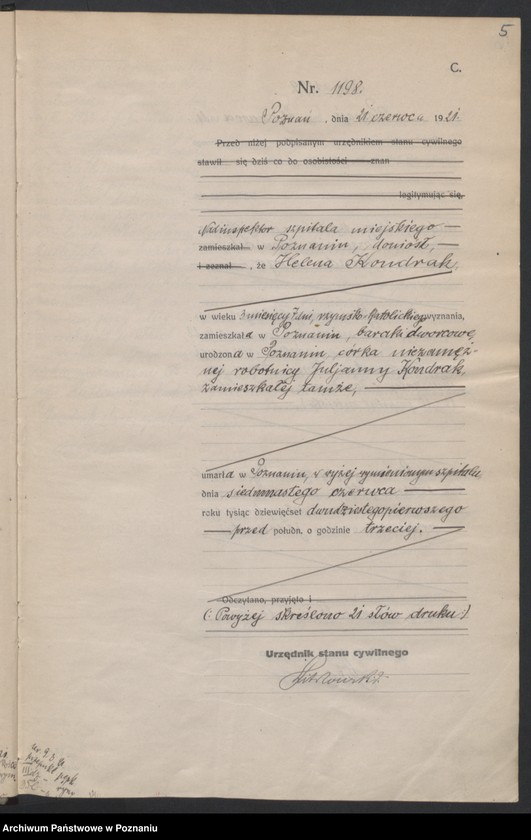 5
C.
Nr. 1198.
Poznań, dnia 21 czerwca 1921.
Przed niżej podpisanym urzędnikiem stanu cywilnego
stawił się dziś co do osobistości znan
legitymując się,
Nadinspektor szpitala miejskiego
zamieszkał w Poznaniu, doniósł,
i zeznał, że Helena Kondrak,
w wieku 3 miesięcy 7 dni, rzymsko katolickiego wyznania,
zamieszkała w Poznaniu, baraki dworcowe,
urodzona w Poznaniu, córka niezamęż-
nej robotnicy Juljanny Kondrak,
zamieszkałej tamże,
umarła w Poznaniu, w wyżej wymienionym szpitalu,
dnia siedmnastego czerwca
roku tysiąc dziewięćset dwudziestegopierwszego
przed połudn. o godzinie trzeciej.
Odczytano, przyjęto i
(: Powyżej skreślono 21 słów druku :)
Urzędnik stanu cywilnego
Archiwum Państwowe w Poznaniu